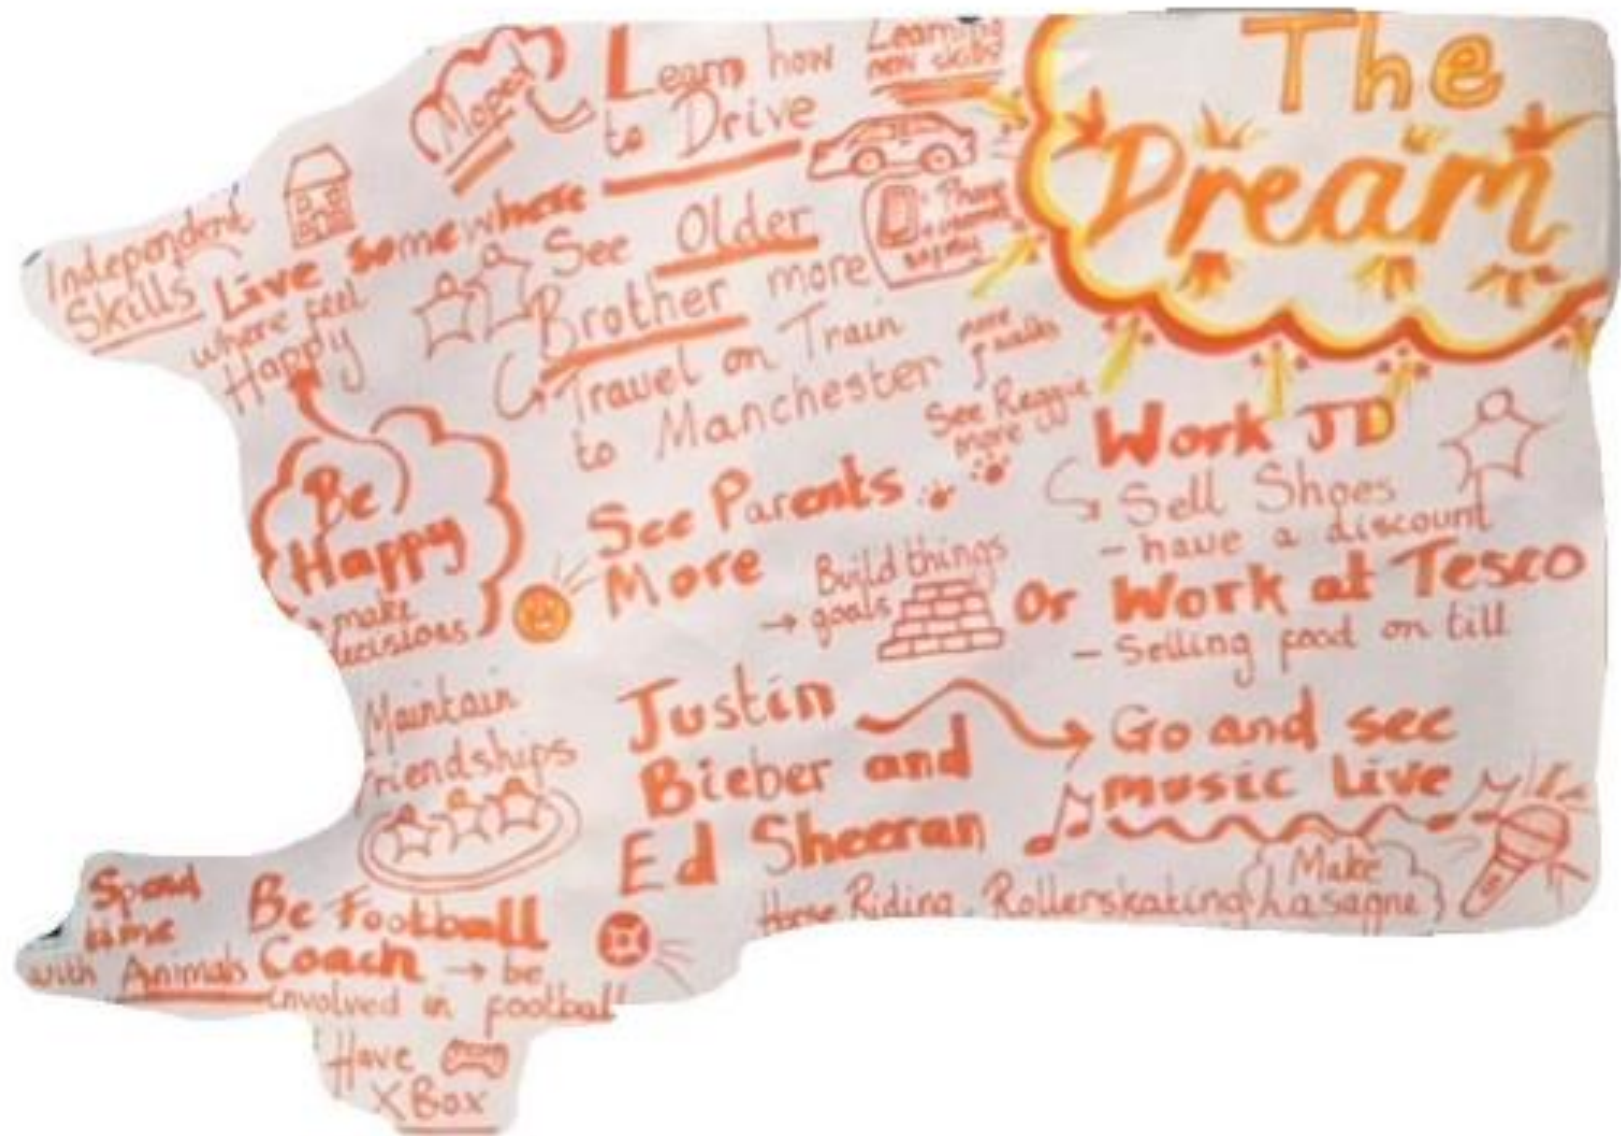 The
Dream
Moped
Learn how
to Drive
Learning
new skills
Phone
+ internet
safety
Independent
Skills
Live somewhere
where feel
Happy
See Older
Brother more
Travel on Train
to Manchester
more
walks
See Reggie
more
Be
Happy
make
decisions
See Parents
More
Build things
→ goals
Work JD
Sell Shoes
- have a discount
Or Work at Tesco
- Selling food on till
Maintain
friendships
Justin
Bieber and
Ed Sheeran
Go and see
music Live
Horse Riding
Rollerskating
Make
Lasagne
Spend
time
with Animals
Be Football
Coach → be
involved in football
Have
XBox